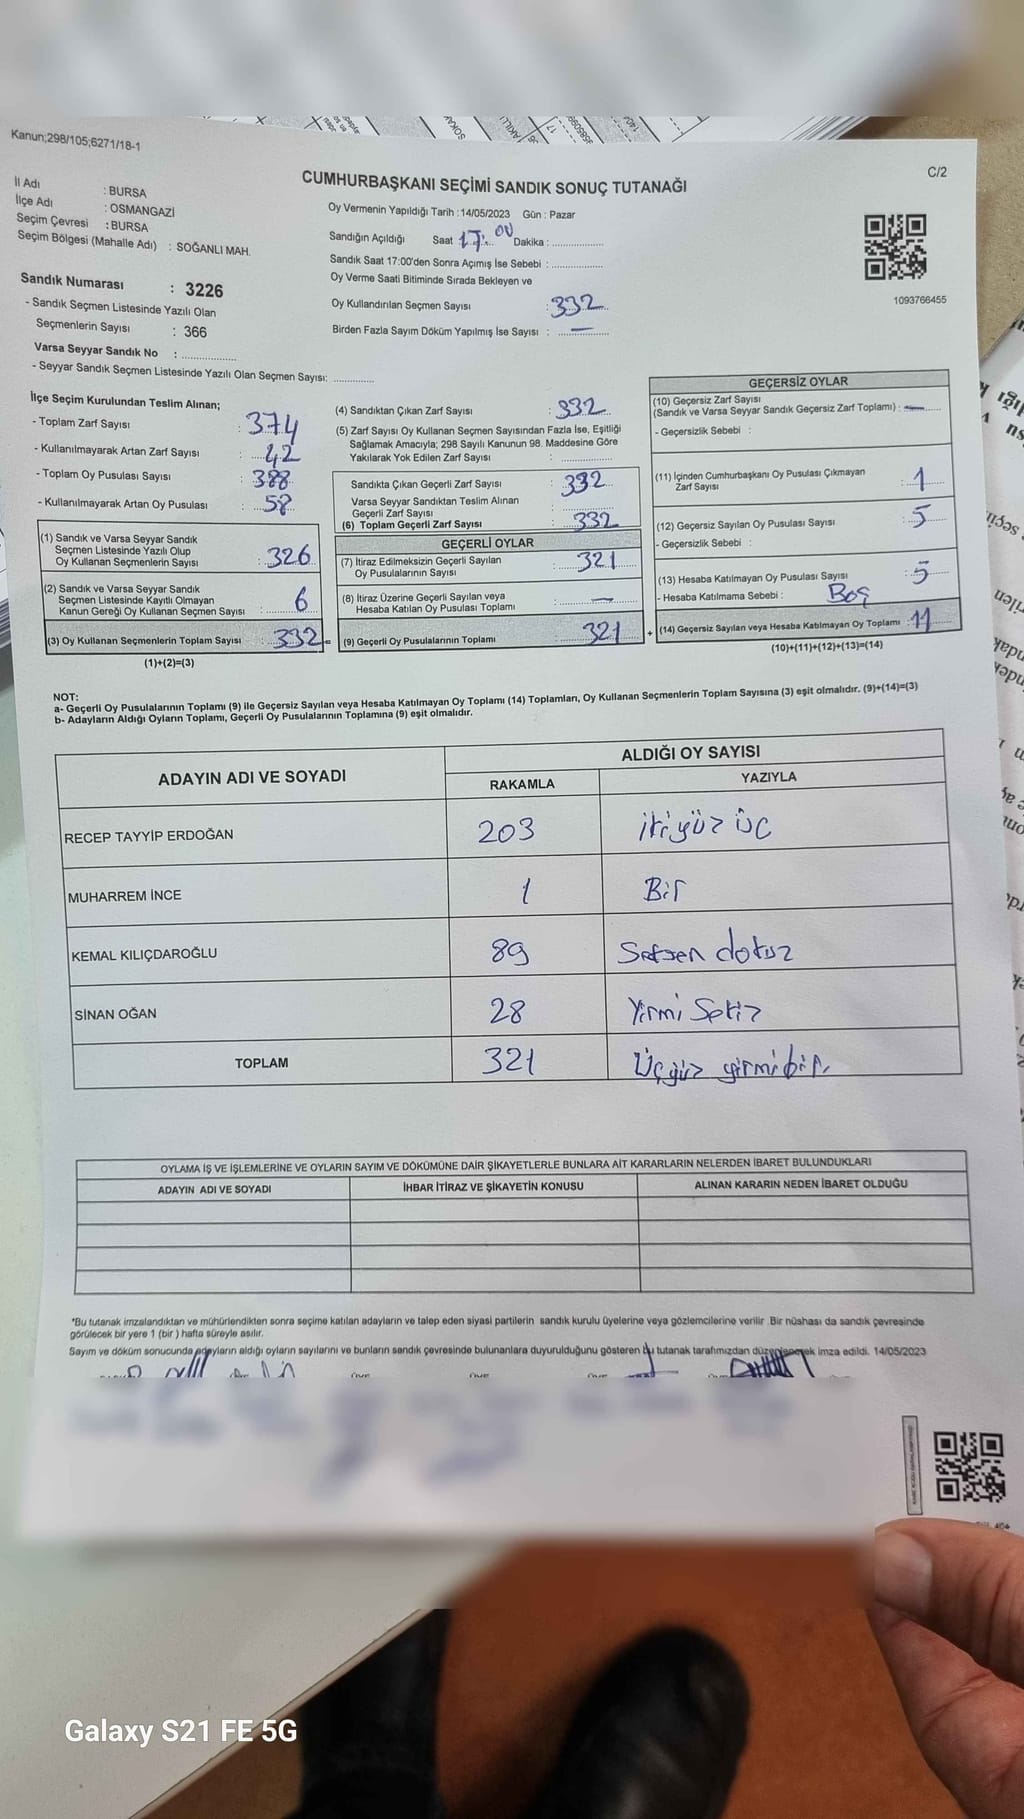 Kanun;298/105;6271/18-1
C/2
CUMHURBAŞKANI SEÇİMİ SANDIK SONUÇ TUTANAĞI
İl Adı : BURSA
İlçe Adı : OSMANGAZİ
Seçim Çevresi : BURSA
Seçim Bölgesi (Mahalle Adı) : SOĞANLI MAH.
Oy Vermenin Yapıldığı Tarih : 14/05/2023 Gün : Pazar
Sandığın Açıldığı Saat 17:00 Dakika :
Sandık Saat 17:00'den Sonra Açımış İse Sebebi :
Oy Verme Saati Bitiminde Sırada Bekleyen ve
Oy Kullandırılan Seçmen Sayısı : 332
Birden Fazla Sayım Döküm Yapılmış İse Sayısı : —
1093766455
Sandık Numarası : 3226
- Sandık Seçmen Listesinde Yazılı Olan
Seçmenlerin Sayısı : 366
Varsa Seyyar Sandık No :
- Seyyar Sandık Seçmen Listesinde Yazılı Olan Seçmen Sayısı:
İlçe Seçim Kurulundan Teslim Alınan;
- Toplam Zarf Sayısı : 374
- Kullanılmayarak Artan Zarf Sayısı : 42
- Toplam Oy Pusulası Sayısı : 388
- Kullanılmayarak Artan Oy Pusulası : 58
(1) Sandık ve Varsa Seyyar Sandık
Seçmen Listesinde Yazılı Olup
Oy Kullanan Seçmenlerin Sayısı : 326
(2) Sandık ve Varsa Seyyar Sandık
Seçmen Listesinde Kayıtlı Olmayan
Kanun Gereği Oy Kullanan Seçmen Sayısı : 6
(3) Oy Kullanan Seçmenlerin Toplam Sayısı : 332 =
(1)+(2)=(3)
(4) Sandıktan Çıkan Zarf Sayısı : 332
(5) Zarf Sayısı Oy Kullanan Seçmen Sayısından Fazla İse, Eşitliği
Sağlamak Amacıyla; 298 Sayılı Kanunun 98. Maddesine Göre
Yakılarak Yok Edilen Zarf Sayısı :
Sandıkta Çıkan Geçerli Zarf Sayısı : 332
Varsa Seyyar Sandıktan Teslim Alınan
Geçerli Zarf Sayısı :
(6) Toplam Geçerli Zarf Sayısı : 332
GEÇERLİ OYLAR
(7) İtiraz Edilmeksizin Geçerli Sayılan
Oy Pusulalarının Sayısı : 321
(8) İtiraz Üzerine Geçerli Sayılan veya
Hesaba Katılan Oy Pusulası Toplamı : —
(9) Geçerli Oy Pusulalarının Toplamı : 321 +
GEÇERSİZ OYLAR
(10) Geçersiz Zarf Sayısı
(Sandık ve Varsa Seyyar Sandık Geçersiz Zarf Toplamı) : —
- Geçersizlik Sebebi :
(11) İçinden Cumhurbaşkanı Oy Pusulası Çıkmayan
Zarf Sayısı : 1
(12) Geçersiz Sayılan Oy Pusulası Sayısı : 5
- Geçersizlik Sebebi :
(13) Hesaba Katılmayan Oy Pusulası Sayısı : 5
- Hesaba Katılmama Sebebi : Boş
(14) Geçersiz Sayılan veya Hesaba Katılmayan Oy Toplamı : 11
(10)+(11)+(12)+(13)=(14)
NOT:
a- Geçerli Oy Pusulalarının Toplamı (9) ile Geçersiz Sayılan veya Hesaba Katılmayan Oy Toplamı (14) Toplamları, Oy Kullanan Seçmenlerin Toplam Sayısına (3) eşit olmalıdır. (9)+(14)=(3)
b- Adayların Aldığı Oyların Toplamı, Geçerli Oy Pusulalarının Toplamına (9) eşit olmalıdır.
ADAYIN ADI VE SOYADI
ALDIĞI OY SAYISI
RAKAMLA YAZIYLA
RECEP TAYYİP ERDOĞAN 203 ikiyüz üç
MUHARREM İNCE 1 Bir
KEMAL KILIÇDAROĞLU 89 Seksen dokuz
SİNAN OĞAN 28 Yirmi Sekiz
TOPLAM 321 Üçyüz yirmi bir.
OYLAMA İŞ VE İŞLEMLERİNE VE OYLARIN SAYIM VE DÖKÜMÜNE DAİR ŞİKAYETLERLE BUNLARA AİT KARARLARIN NELERDEN İBARET BULUNDUKLARI
ADAYIN ADI VE SOYADI İHBAR İTİRAZ VE ŞİKAYETİN KONUSU ALINAN KARARIN NEDEN İBARET OLDUĞU
*Bu tutanak imzalandıktan ve mühürlendikten sonra seçime katılan adayların ve talep eden siyasi partilerin sandık kurulu üyelerine veya gözlemcilerine verilir .Bir nüshası da sandık çevresinde
görülecek bir yere 1 (bir ) hafta süreyle asılır.
Sayım ve döküm sonucunda adayların aldığı oyların sayılarını ve bunların sandık çevresinde bulunanlara duyurulduğunu gösteren bu tutanak tarafımızdan düzenlenerek imza edildi. 14/05/2023
Galaxy S21 FE 5G